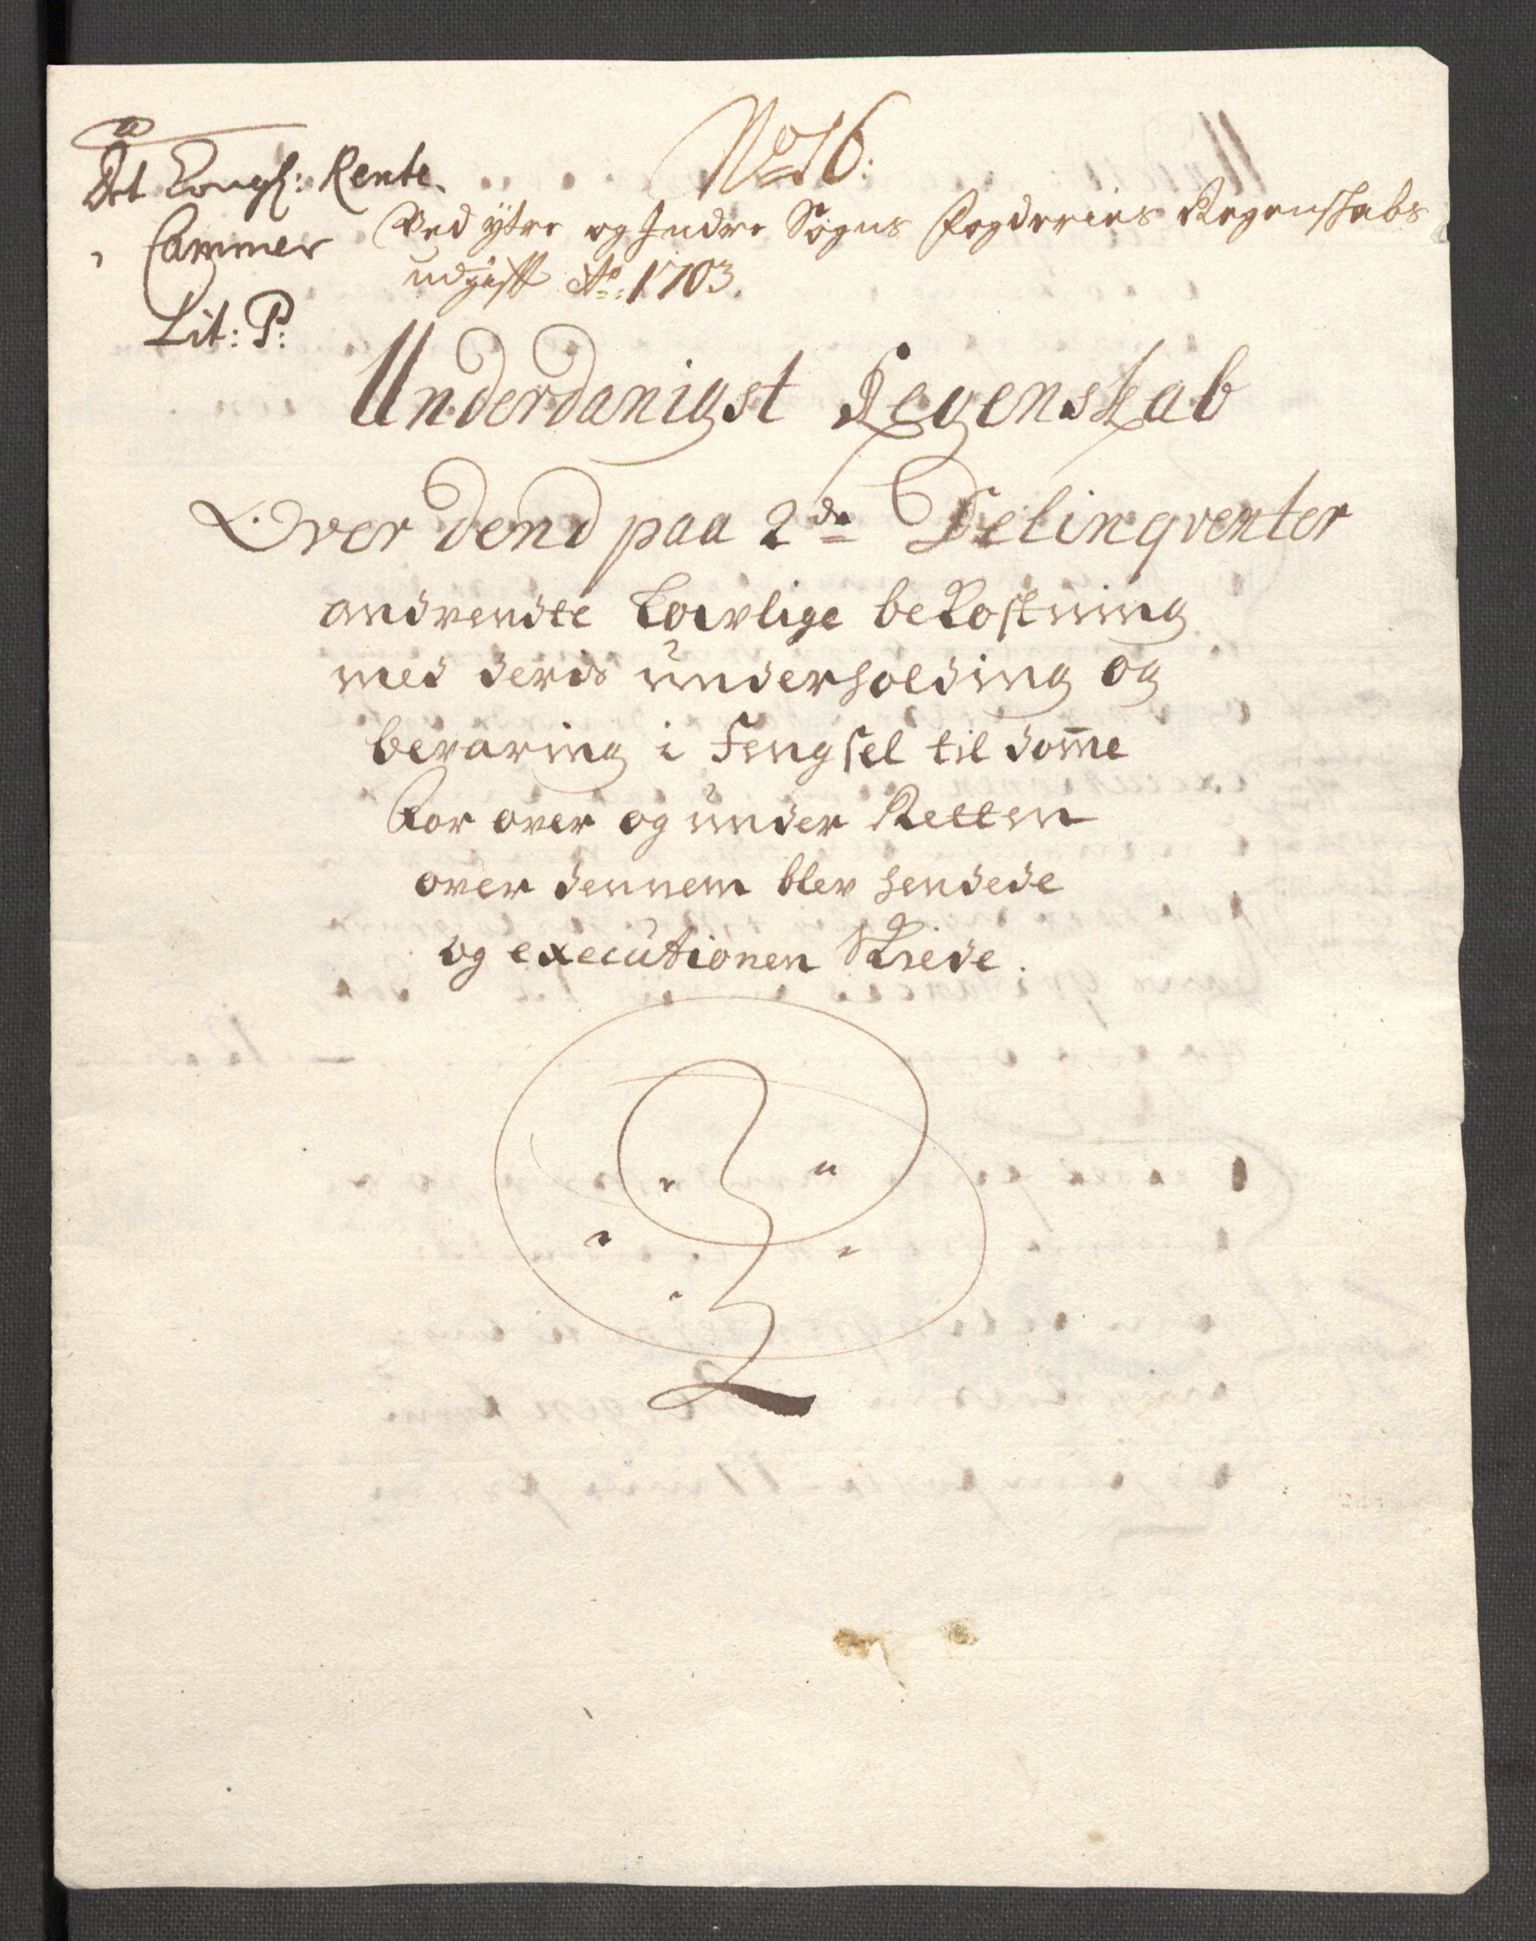 No 16:
Det Kongl: Rente
Cammer
Lit: P:
Ved ytre og Indre Sogns Fogderies Regenskabs
udgift Ao: 1703.
Underdanigst Regenskab
Over dend paa 2de Delinqventer
andvendte Lovlige bekostning
med deris underholding og
bevaring i Fengsel til dom̅e
for over og under Retten
over dennem blev hendede
og executionen Skiede.